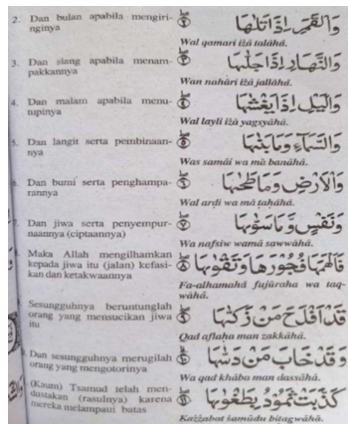 2. Dan bulan apabila mengiri-
nginya
وَالْقَمَرِ اِذَا تَلٰىهَا ۝٢
Wal qamari iżā talāhā.
3. Dan siang apabila menam-
pakkannya
وَالنَّهَارِ اِذَا جَلّٰىهَا ۝٣
Wan nahāri iżā jallāhā.
4. Dan malam apabila menu-
tupinya
وَالَّيْلِ اِذَا يَغْشٰىهَا ۝٤
Wal layli iżā yagsyāhā.
5. Dan langit serta pembinaan-
nya
وَالسَّمَآءِ وَمَا بَنٰىهَا ۝٥
Was samāi wa mā banāhā.
6. Dan bumi serta penghampa-
rannya
وَالْاَرْضِ وَمَا طَحٰىهَا ۝٦
Wal arḍi wa mā ṭaḥāhā.
7. Dan jiwa serta penyempur-
naannya (ciptaannya)
وَنَفْسٍ وَّمَا سَوّٰىهَا ۝٧
Wa nafsiw wamā sawwāhā.
Maka Allah mengilhamkan
kepada jiwa itu (jalan) kefasi-
kan dan ketakwaannya
فَاَلْهَمَهَا فُجُوْرَهَا وَتَقْوٰىهَا ۝٨
Fa-alhamahā fujūraha wa taq-
wāhā.
Sesungguhnya beruntunglah
orang yang mensucikan jiwa
itu
قَدْ اَفْلَحَ مَنْ زَكّٰىهَا ۝٩
Qad aflaḥa man zakkāhā.
Dan sesungguhnya merugilah
orang yang mengotorinya
وَقَدْ خَابَ مَنْ دَسّٰىهَا ۝١٠
Wa qad khāba man dassāhā.
(Kaum) Tsamud telah men-
dustakan (rasulnya) karena
mereka melampaui batas
كَذَّبَتْ ثَمُوْدُ بِطَغْوٰىهَا ۝١١
Każżabat śamūdu bitagwāhā.